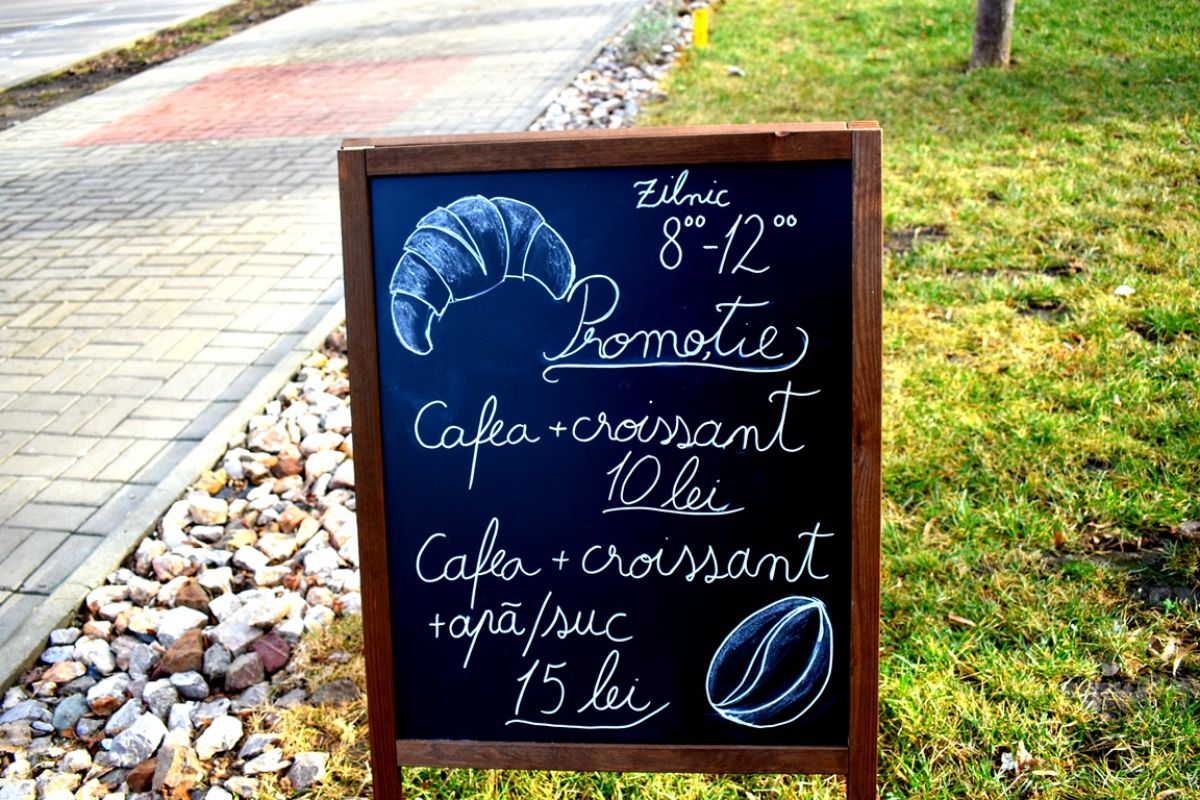 Zilnic
8⁰⁰-12⁰⁰
Promoție
Cafea + croissant
10 lei
Cafea + croissant
+ apă/suc
15 lei